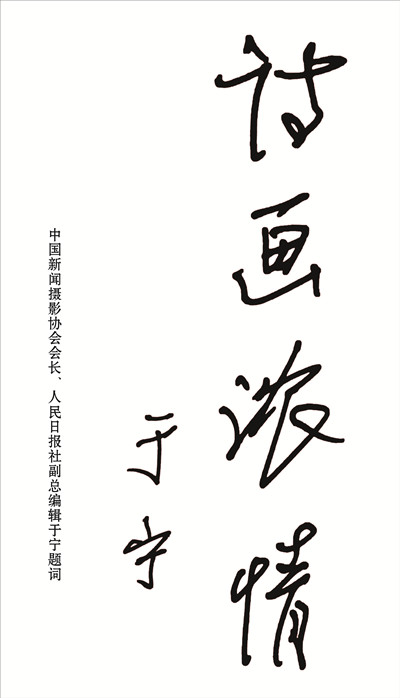 诗画浓情
于宁
中国新闻摄影协会会长、人民日报社副总编辑于宁题词